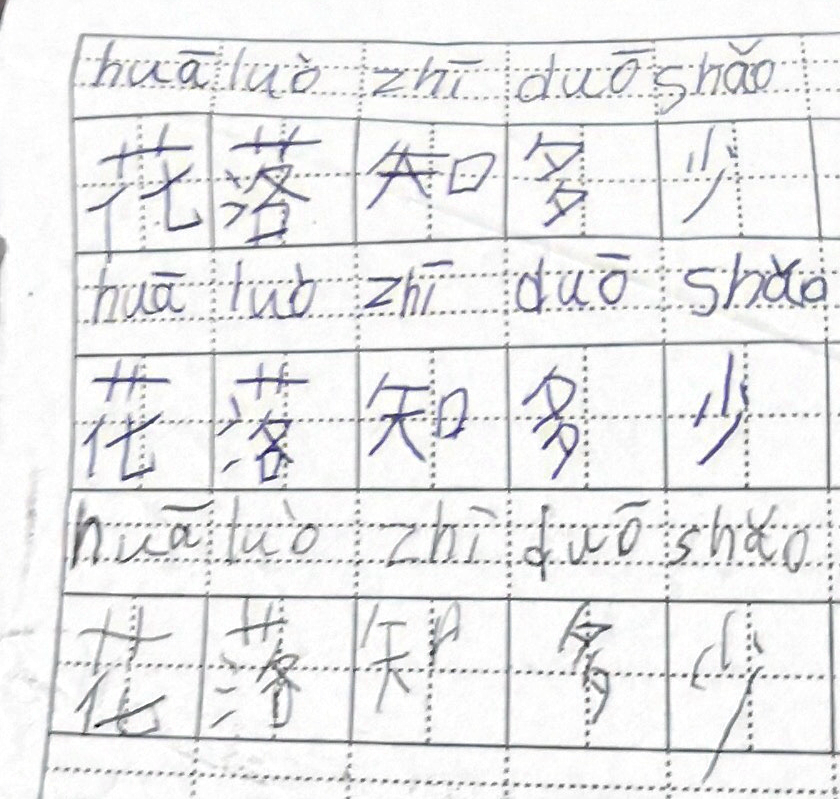 huā luò zhī duō shǎo
花落知多少
huā luò zhī duō shǎo
花落知多少
huā luò zhī duō shǎo
花落知多少